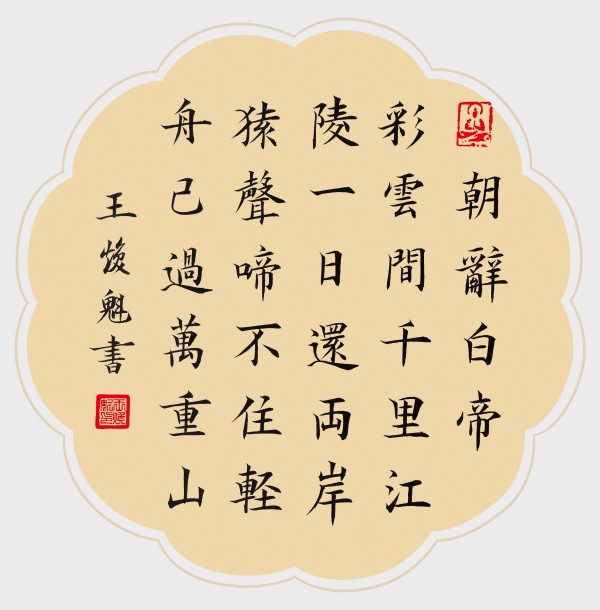 朝辭白帝
彩雲間千里江
陵一日還両岸
猿聲啼不住軽
舟已過萬重山
王煥魁書